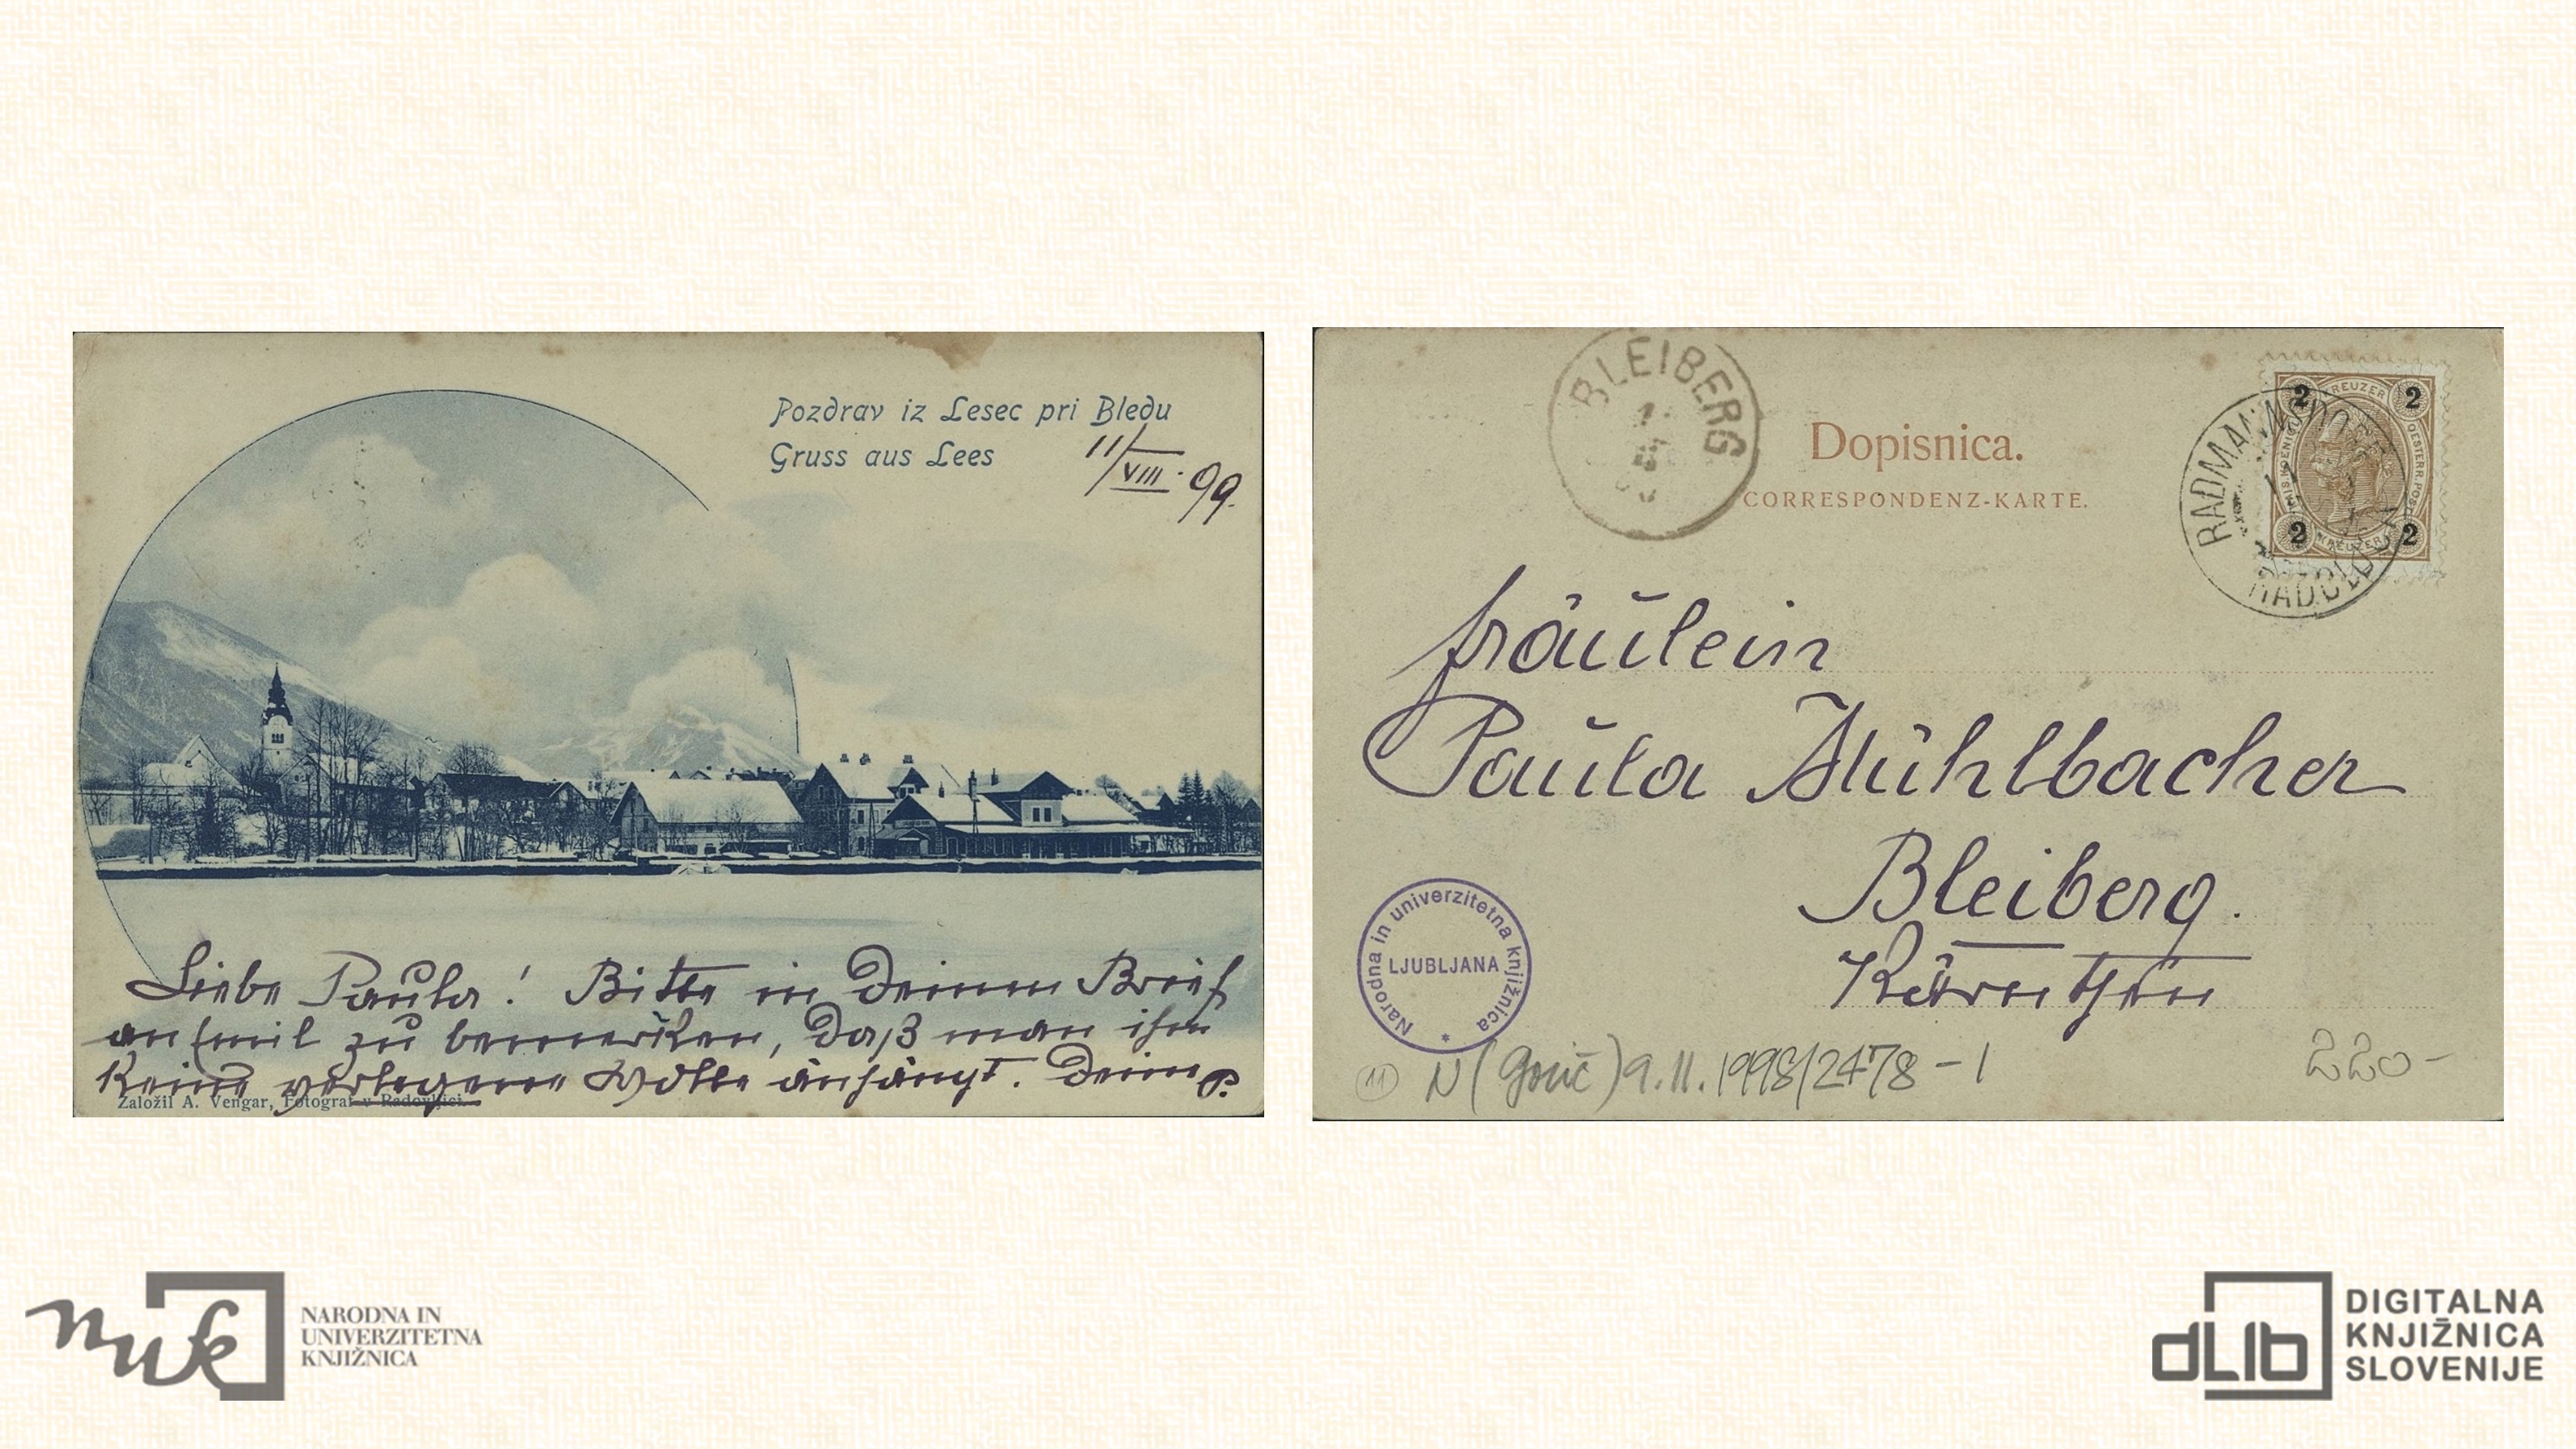 Pozdrav iz Lesec pri Bledu
Gruss aus Lees
11/VIII. 99.
Liebe Paula! Bitte in Deinem Brief
an Emil zu bemerken, daß man ihm
keine verlegene Wolle anhängt. Deine P.
Založil A. Vengar, Fotograf v Radovljici.
BLEIBERG
Dopisnica.
CORRESPONDENZ-KARTE.
2 KREUZER 2
2 KREUZER 2
RADMANNSDORF
RADOLJCA
Fräulein
Paula Mühlbacher
Bleiberg.
Kärnthen
Narodna in univerzitetna knjižnica
LJUBLJANA
11 N (Gorič) 9.11.1998/2478-1
220-
nuk
NARODNA IN
UNIVERZITETNA
KNJIŽNICA
dLib
DIGITALNA
KNJIŽNICA
SLOVENIJE